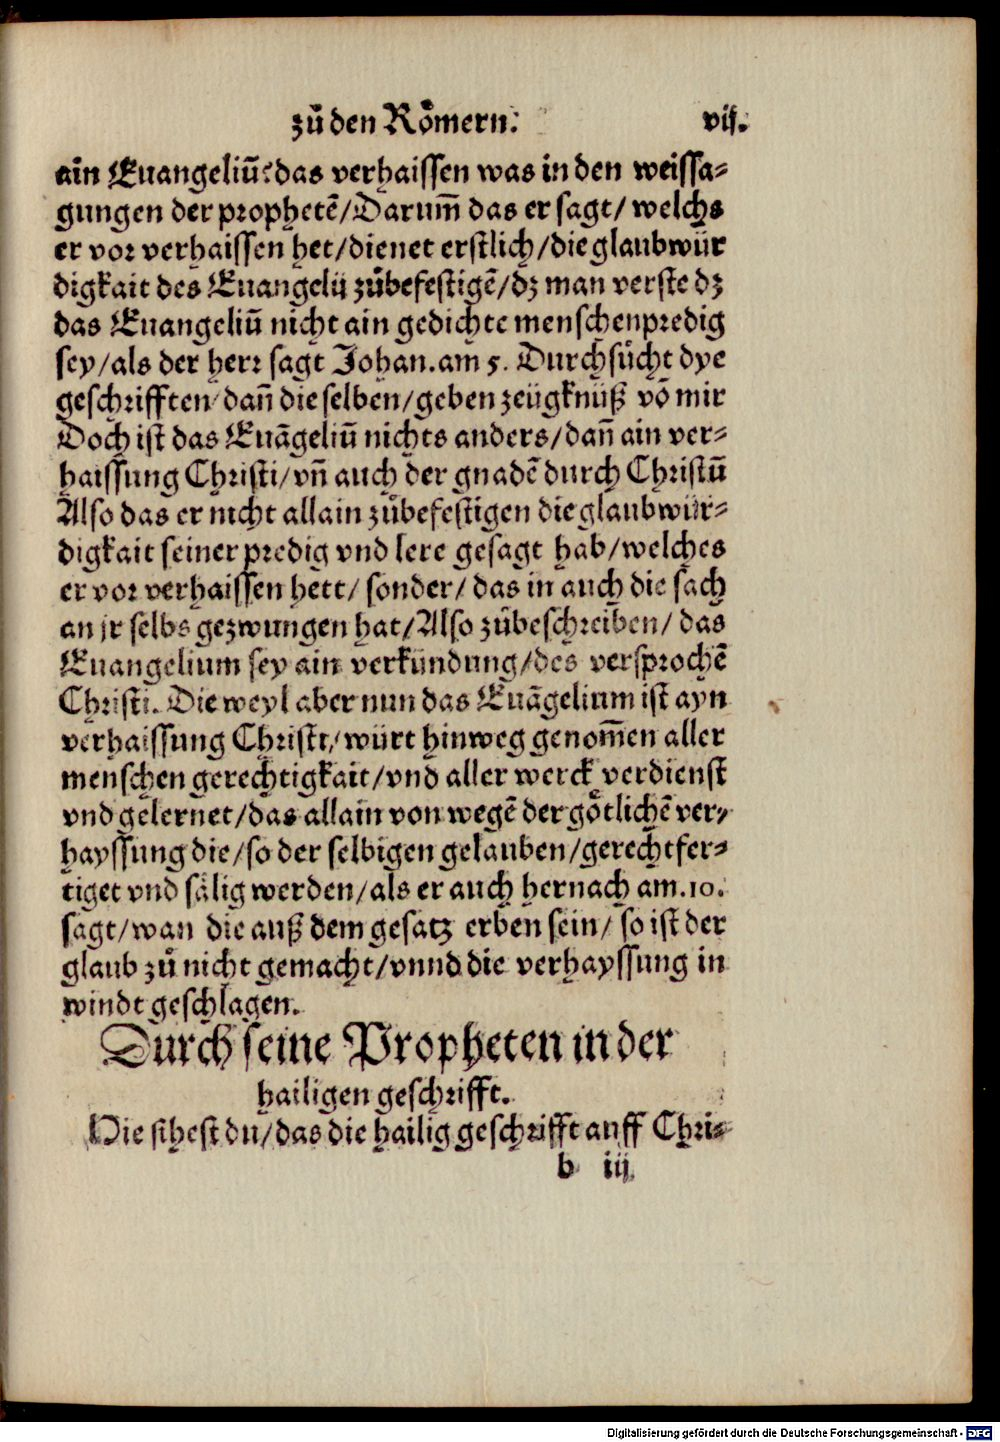 zů den Rŏmern. vij.
ain Euangeliū? das verhaissen was in den weissa-
gungen der prophetē/Darum̃ das er sagt/ welchs
er vor verhaissen het/dienet erstlich/die glaubwür
digkait des Euangelij zůbefestigē/dz man verste dz
das Euangeliū nicht ain gedichte menschenpredig
sey/als der herr sagt Johan. am 5. Durchsůcht dye
geschrifften/dañ die selben/geben zeügknüß vō mir
Doch ist das Euāgeliū nichts anders/dañ ain ver-
haissung Christi/vñ auch der gnadē durch Christū
Also das er nicht allain zůbefestigen die glaubwür-
digkait seiner predig vnd lere gesagt hab/welches
er vor verhaissen hett/ sonder/ das in auch die sach
an jr selbs gezwungen hat/Also zůbeschreiben/ das
Euangelium sey ain verkündung/des versprochē
Christi. Die weyl aber nun das Euāgelium ist ayn
verhaissung Christi/würt hinweg genom̃en aller
menschen gerechtigkait/vnd aller werck verdienst
vnd gelernet/das allain von wegē der götlichē ver-
hayssung die/so der selbigen gelauben/gerechtfer-
tiget vnd sälig werden/als er auch hernach am.10.
sagt/wan die auß dem gesatz erben sein/ so ist der
glaub zů nicht gemacht/vnnd die verhayssung in
windt geschlagen.
Durch seine Propheten in der
hailigen geschrifft.
Hie sihest du/das die hailig geschrifft auff Chri-
b iij
Digitalisierung gefördert durch die Deutsche Forschungsgemeinschaft - DFG